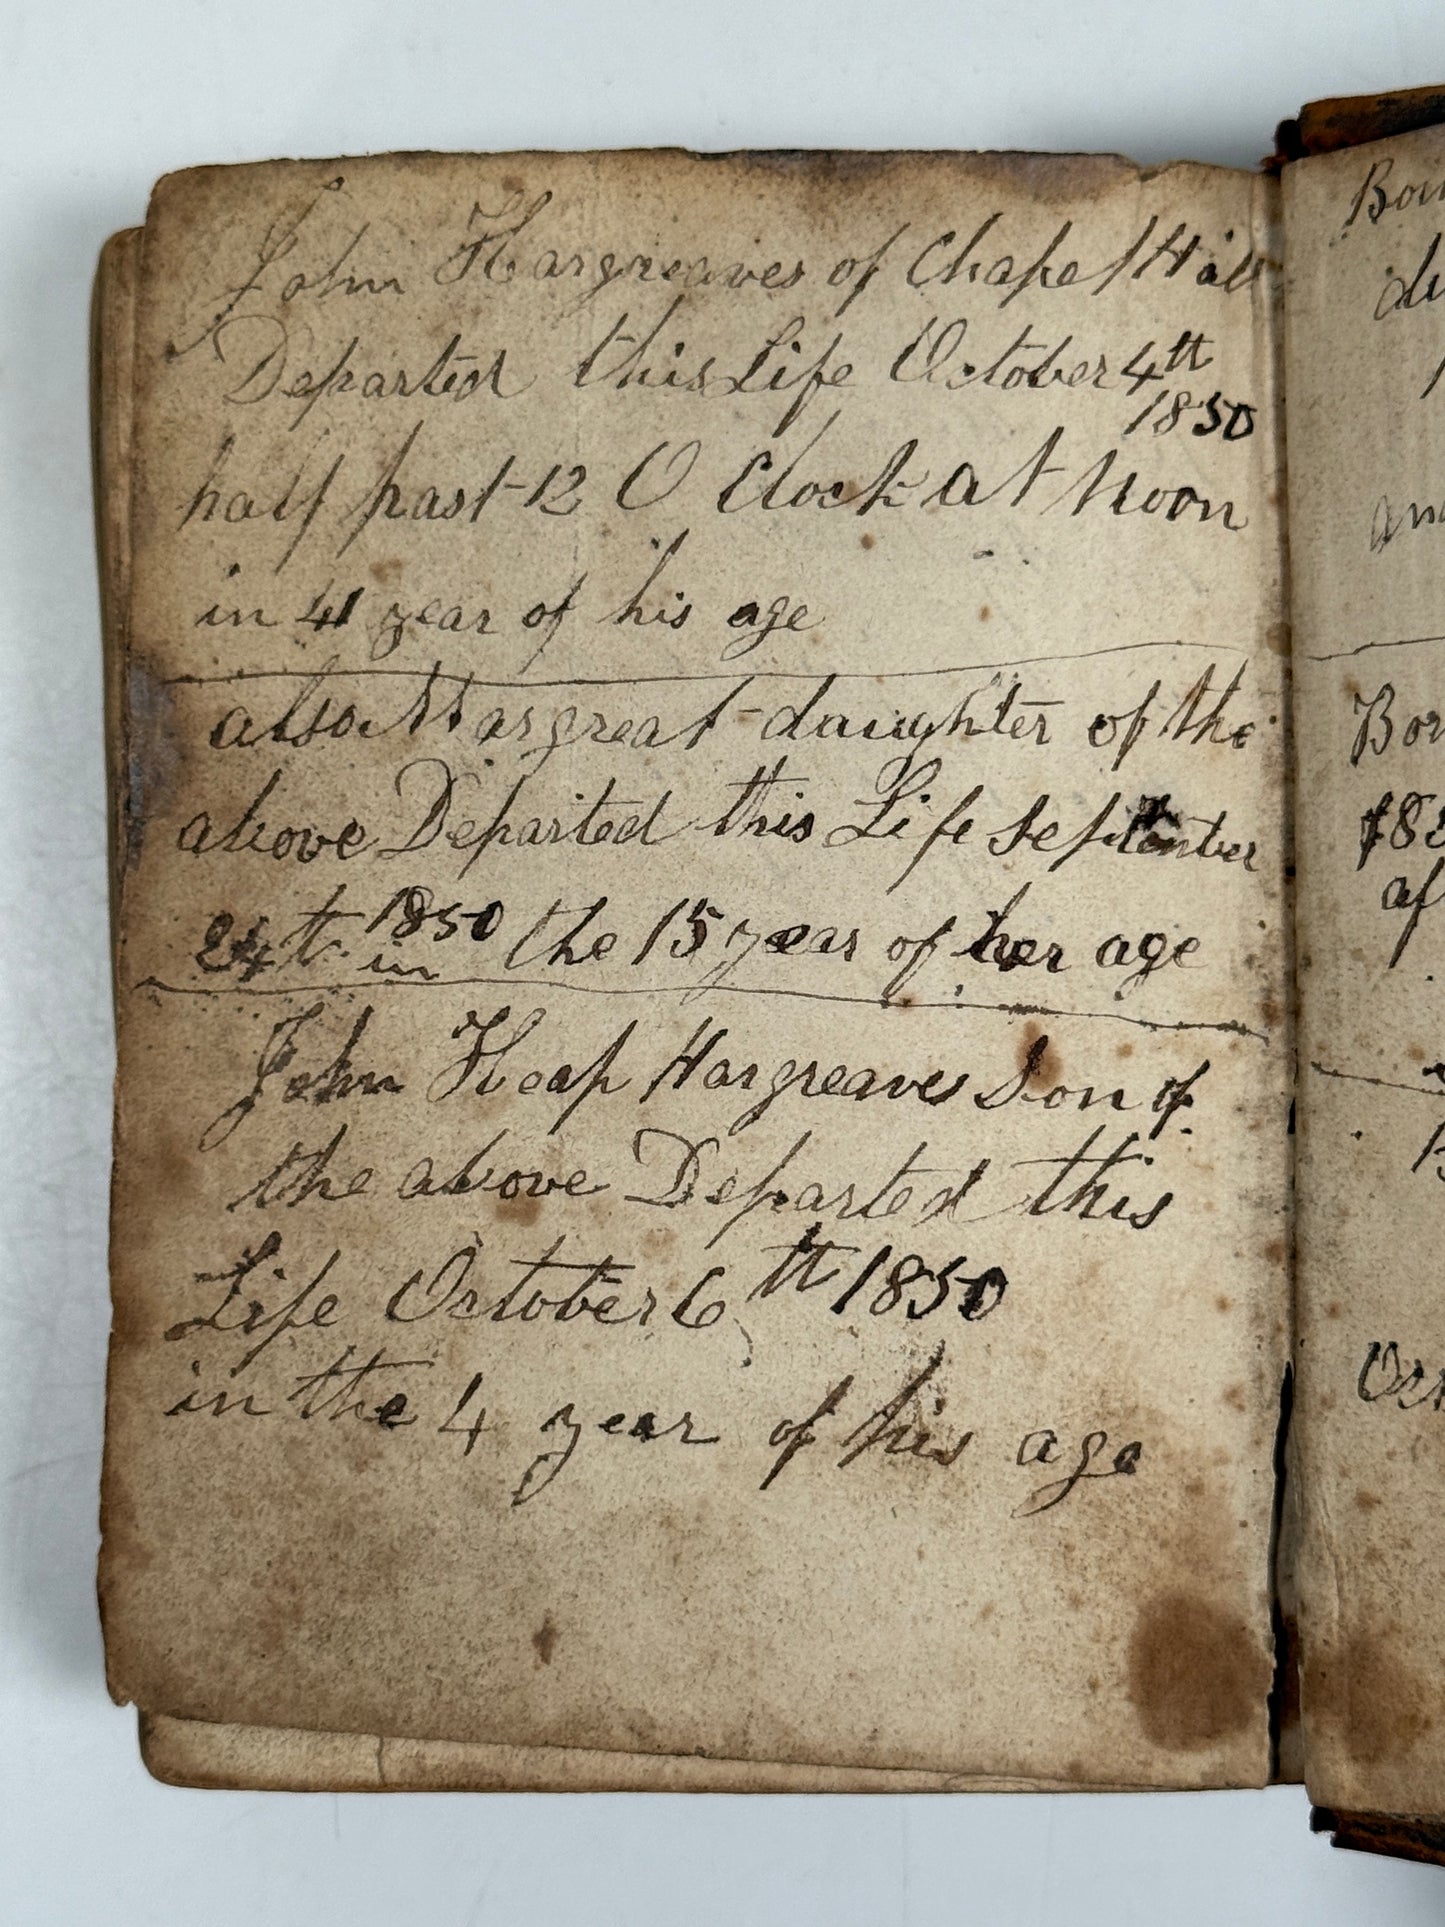 John Hargreaves of Chapel Hill
Departed this Life October 4tt
1850
half past 12 O Clock at Noon
in 41 year of his age
also Margreat daughter of the
above Departed this Life September
24tt 1850 in the 15 year of her age
John Heap Hargreaves Son of
the above Departed this
Life October 6tt 1850
in the 4 year of his age
Bor
Bor
af